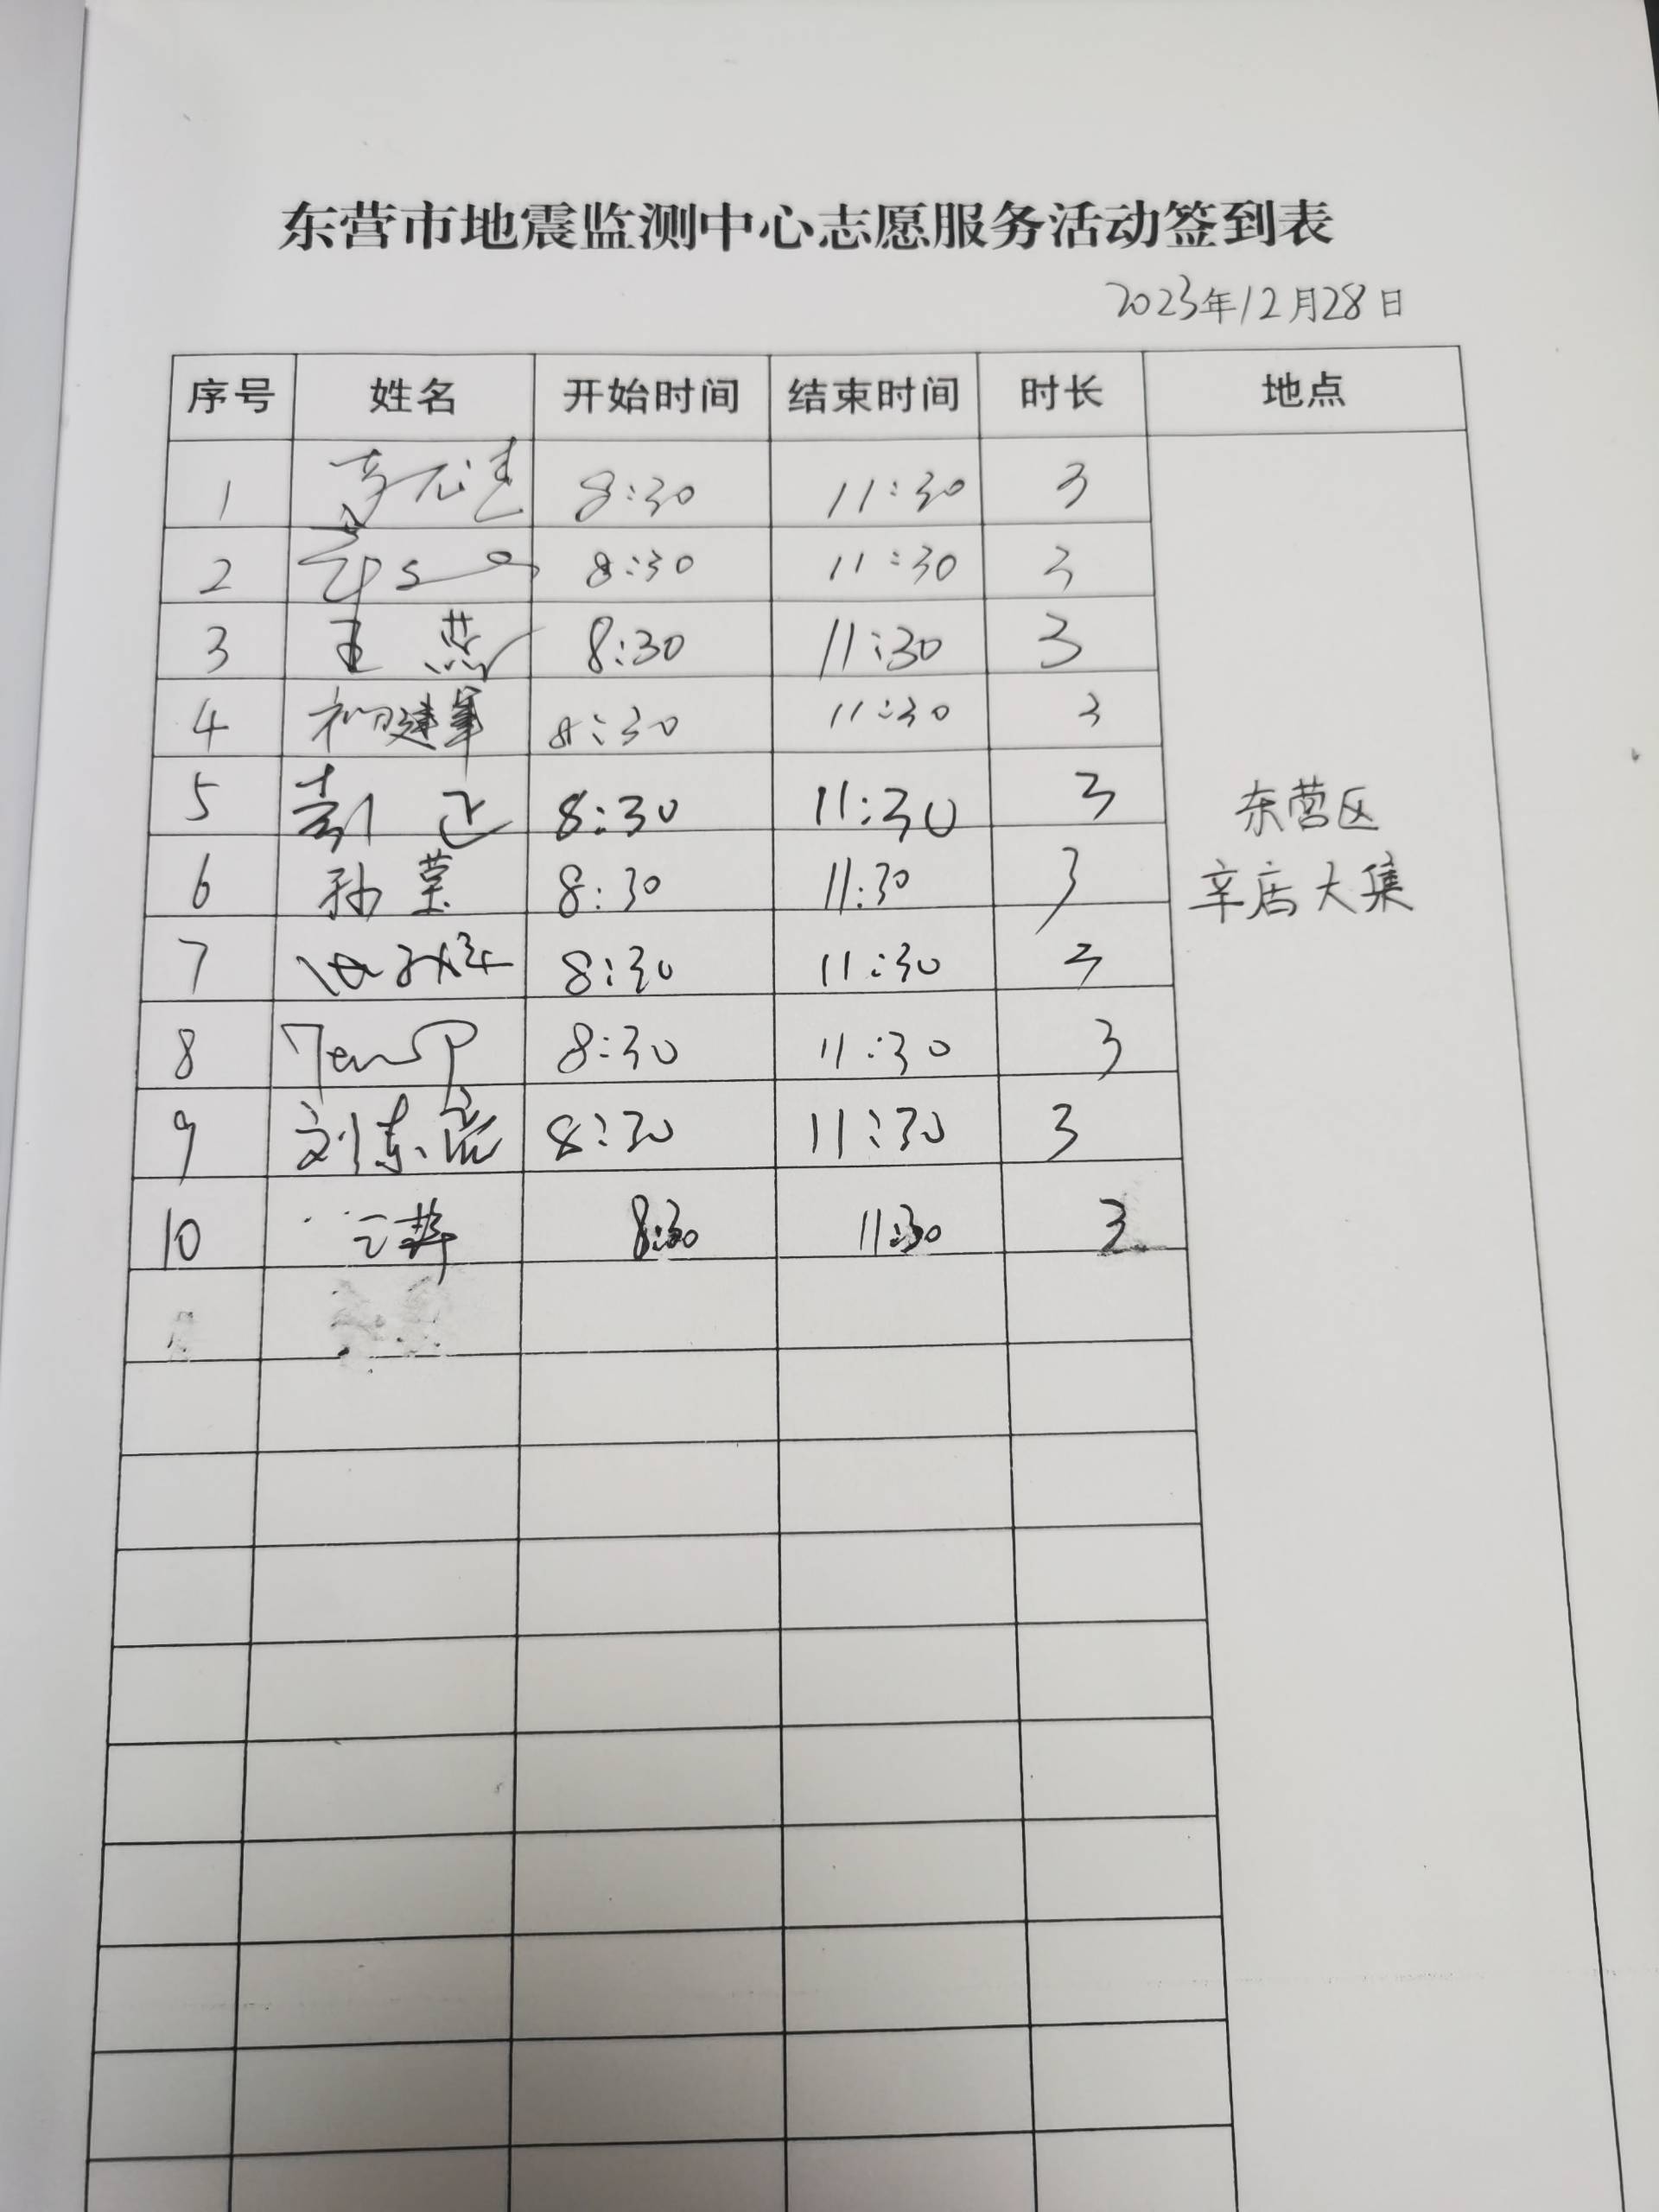 东营市地震监测中心志愿服务活动签到表
2023年12月28日
序号 姓名 开始时间 结束时间 时长 地点
1 8:30 11:30 3
2 8:30 11:30 3
3 王燕 8:30 11:30 3
4 建军 8:30 11:30 3
5 8:30 11:30 3
东营区
6 孙 8:30 11:30 3
辛店大集
7 8:30 11:30 3
8 8:30 11:30 3
9 刘东 8:30 11:30 3
10 8:30 11:30 3